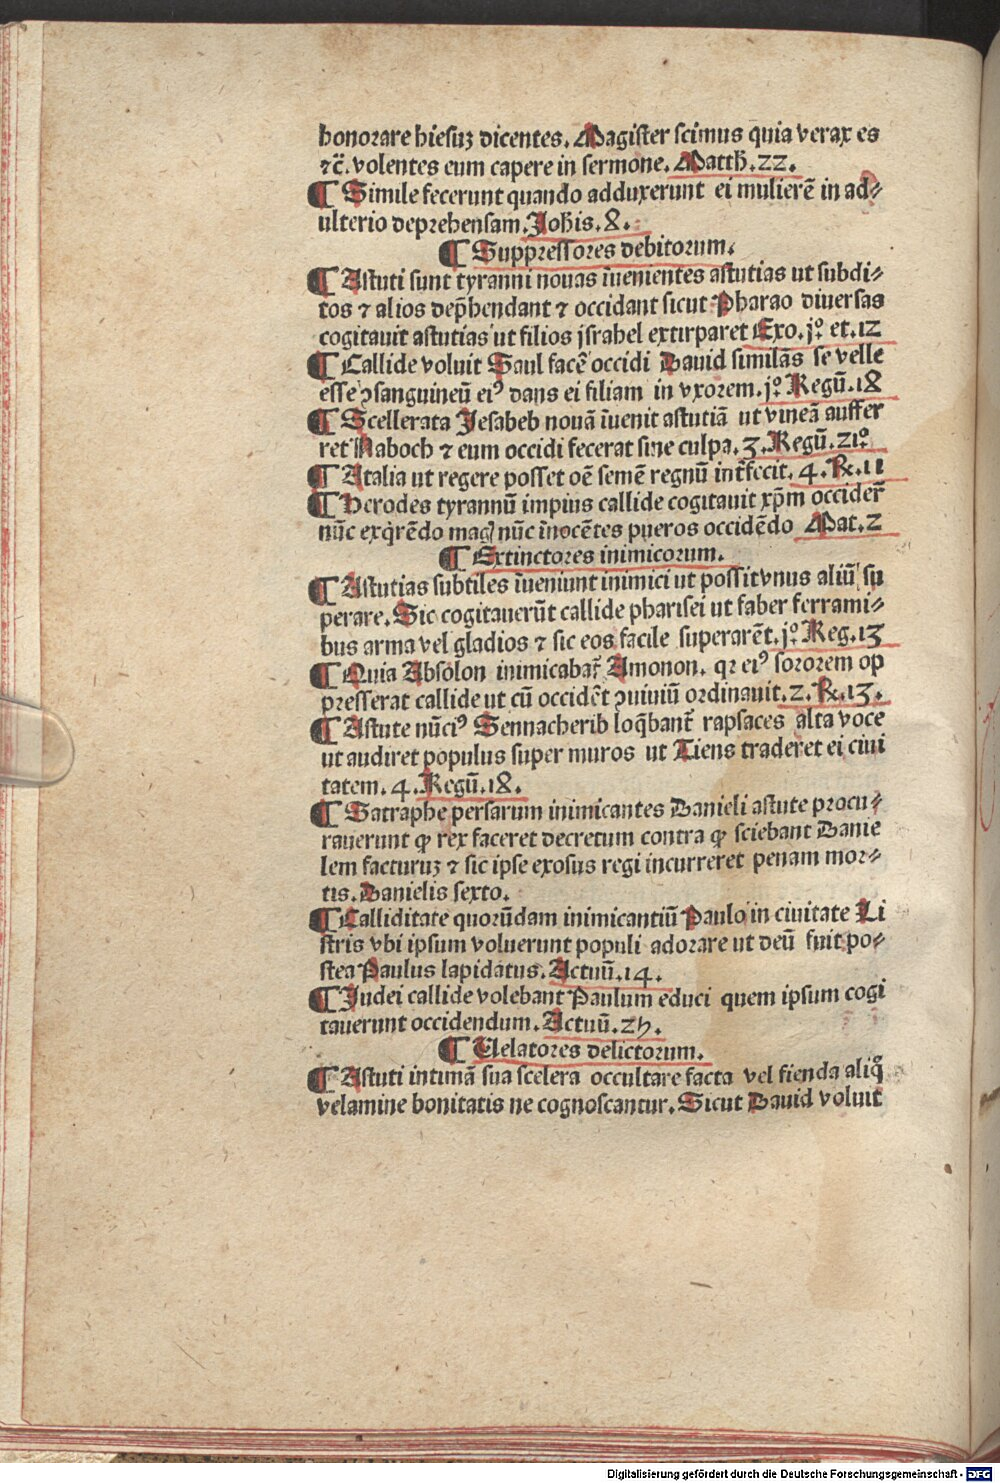 honorare hiesuꝫ dicentes. Magister scimus quia verax es
⁊c̄. volentes eum capere in sermone. Matth̄. 22.
¶ Simile fecerunt quando adduxerunt ei mulierē in ad⸗
ulterio deprehensam. Joh̄is. 8.
¶ Suppressores debitorum.
¶ Astuti sunt tyranni nouas īuenientes astutias ut subdi⸗
tos ⁊ alios dep̄hendant ⁊ occidant sicut Pharao diuersas
cogitauit astutias ut filios jsrahel extirparet Exo. jº et. 12
¶ Callide voluit Saul facē occidi Dauid similās se velle
esse ꝯsanguineū eiꝰ dans ei filiam in vxorem. jº Regū. 18
¶ Scellerata Jesabeb nouā īuenit astutiā ut vineā auffer
ret Naboch ⁊ eum occidi fecerat sine culpa. 3. Regū. 21º
¶ Atalia ut regere posset oē semē regnū int̄fecit. 4. Rx. 11
¶ Herodes tyrannū impius callide cogitauit xp̄m occider̄
nūc exq̇rēdo mag nūc īnocētes pueros occidēdo Mat. 2
¶ Extinctores inimicorum.
¶ Astutias subtiles īueniunt inimici ut possit vnus aliū su
perare. Sic cogitauerūt callide pharisei ut faber ferrami⸗
bus arma vel gladios ⁊ sic eos facile superarēt. jº Reg. 13
¶ Quia Absolon inimicabat᷑ Amonon. qr eiꝰ sororem op
presserat callide ut cū occidēt ꝯuiuiū ordinauit. 2. Rx. 13.
¶ Astute nūciꝰ Sennacherib loq̄bant᷑ rapsaces alta voce
ut audiret populus super muros ut Tiens traderet ei ciui
tatem. 4. Regū. 18.
¶ Satraphe persarum inimicantes Danieli astute procu⸗
rauerunt ꝙ rex faceret decretum contra ꝙ sciebant Danie
lem facturuꝫ ⁊ sic ipse exosus regi incurreret penam mor⸗
tis. Danielis sexto.
¶ Calliditate quorūdam inimicantiū Paulo in ciuitate Li
stris vbi ipsum voluerunt populi adorare ut deū fuit po⸗
stea Paulus lapidatus. Actuū. 14.
¶ Judei callide volebant Paulum educi quem ipsum cogi
tauerunt occidendum. Actuū. 25.
¶ Uelatores delictorum.
¶ Astuti intimā sua scelera occultare facta vel fienda aliq̊
velamine bonitatis ne cognoscantur. Sicut Dauid voluit
Digitalisierung gefördert durch die Deutsche Forschungsgemeinschaft - DFG